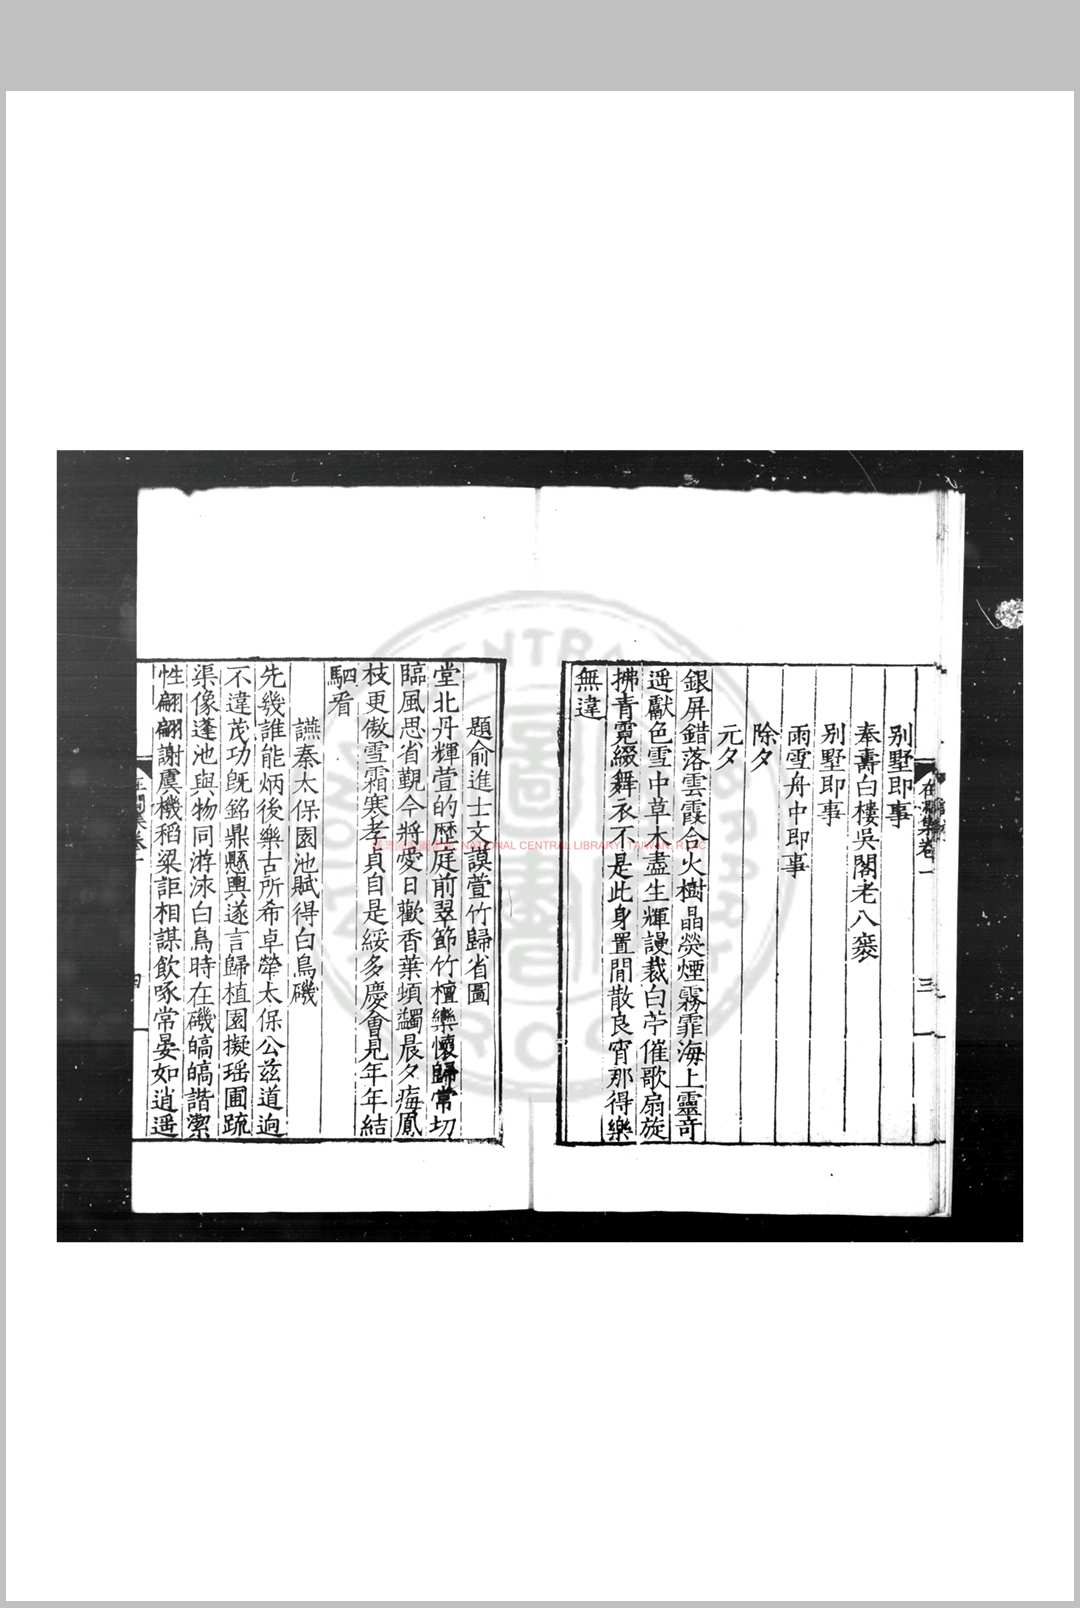 別墅即事
奉壽白樓吳閣老八袠
別墅即事
雨雪舟中即事
除夕
元夕
銀屏錯落雲霞合火樹晶熒煙霧霏海上靈奇
遥獻色雪中草木盡生輝謾裁白苧催歌扇旋
拂青霓綴舞衣不是此身置閒散良宵那得樂
無違
題俞進士文謨萱竹歸省圖
堂北丹輝萱的歷庭前翠節竹檀欒懷歸常切
臨風思省覲今將愛日歡香葉頻蠲晨夕痗鳳
枝更傲雪霜寒孝貞自是綏多慶會見年年結
駟看
讌秦太保園池賦得白鳥磯
先幾誰能炳後樂古所希卓犖太保公兹道迥
不違茂功旣銘鼎懸輿遂言歸植園擬瑶圃疏
渠像蓬池與物同游泳白鳥時在磯皜皜諧潔
性翩翩謝虞機稻粱詎相謀飲啄常晏如逍遥
卷一
三
四
NATIONAL CENTRAL LIBRARY, TAIWAN, R.O.C